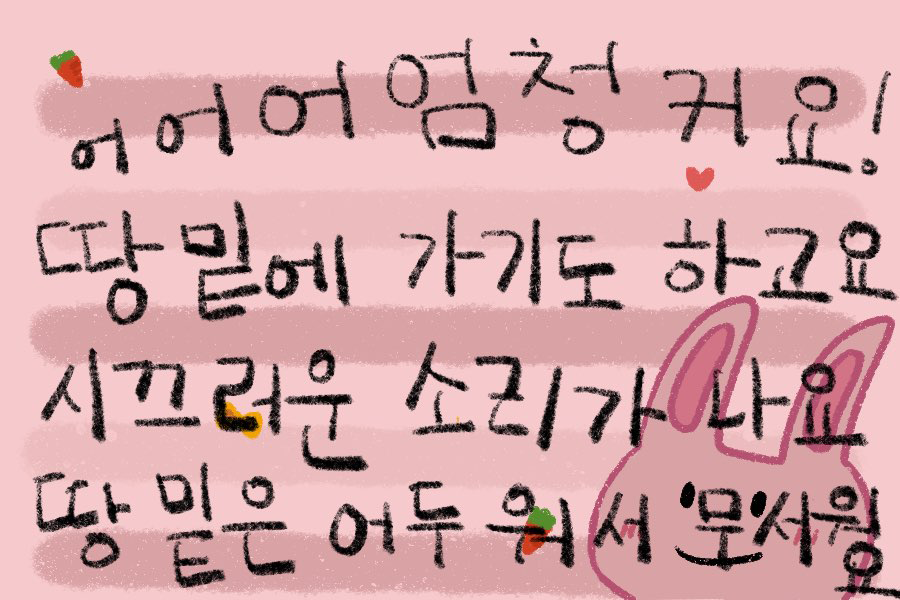 어어어엄청 커요!
땅 밑에 가기도 하고요
시끄러운 소리가 나요
땅 밑은 어두워서 무서워요